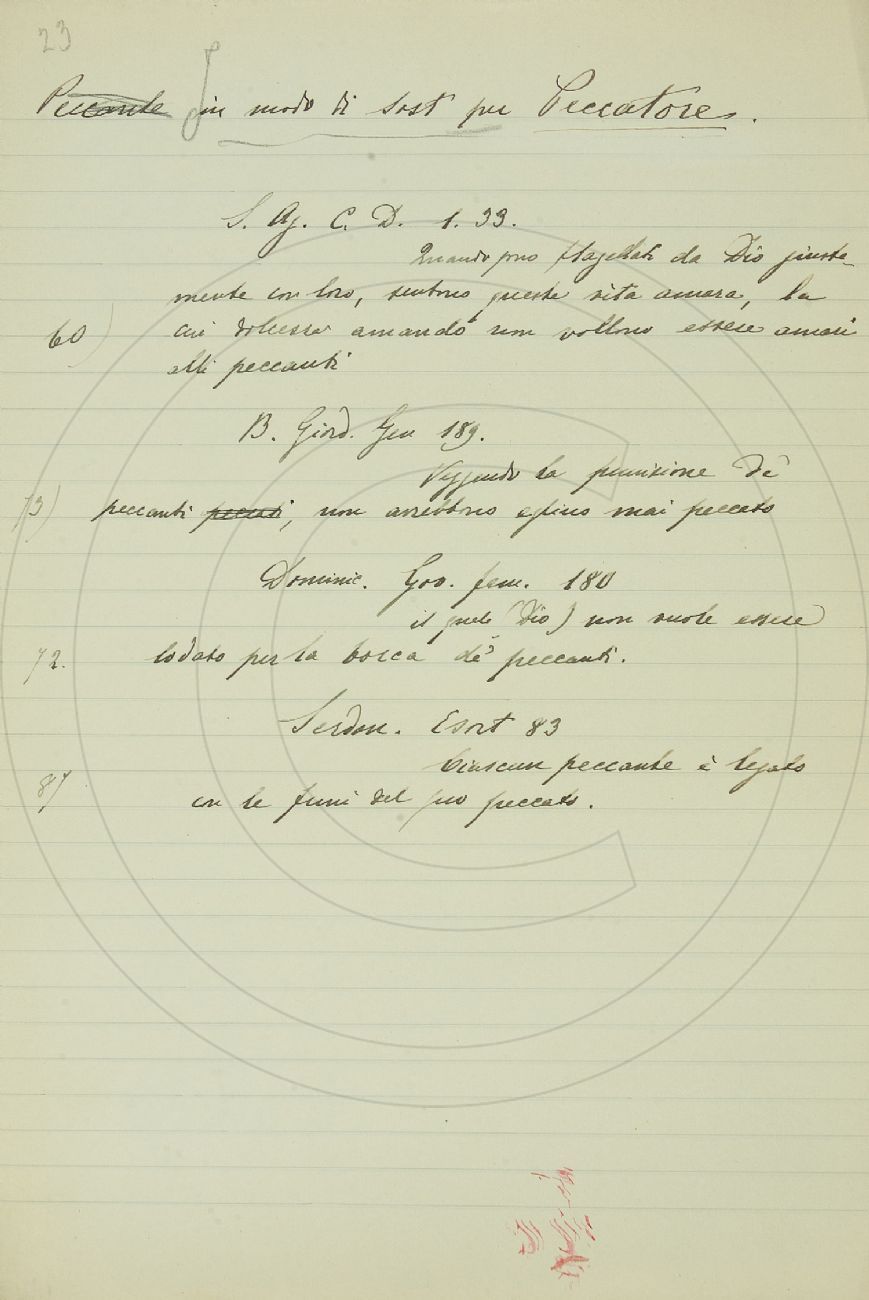 23
Peccante in modo di Sost per Peccatore.
S. Ag. C. D. 1. 33.
Quando sono flagellati da Dio giusta-
mente con loro, sentono questa vita amara, la
60) cui dolcezza amando non vollono essere amari
alli peccanti
B. Giord. Gen 189.
Veggendo la punizione de'
73) peccanti, non avrebbono eglino mai peccato
Dominic. Gov. fam. 180
il quale (Dio) non vuole essere
72. lodato per la bocca de' peccanti.
Serdon. Esort 83
Ciascun peccante è legato
87 con le funi del suo peccato.